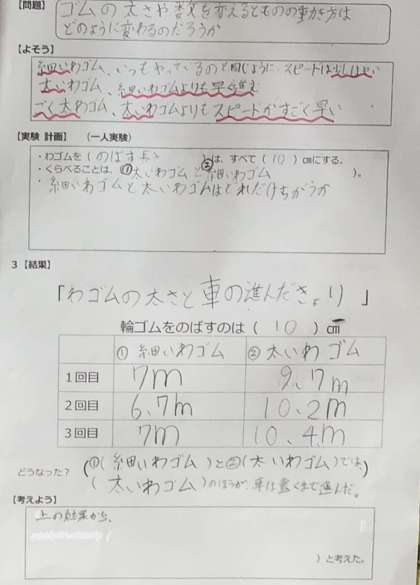 【問題】
ゴムの太さや数を変えるとものの動き方は
どのように変わるのだろうか
【よそう】
細いわゴム、いつもやっているのと同じように、スピードは少しはやい
太いわゴム、細いわゴムよりも早く進む
ごく太わゴム、太いわゴムよりもスピードがすごく早い
【実験 計画】 (一人実験)
・わゴムを(のばす長さ )は、すべて( 10 )㎝にする。
・くらべることは、(①太いわゴムと②細いわゴム )。
・細いわゴムと太いわゴムはどれだけちがうか
3【結果】
「わゴムの太さと車の進んだきょり」
輪ゴムをのばすのは( 10 )㎝
①細いわゴム ②太いわゴム
1回目 7m 9.7m
2回目 6.7m 10.2m
3回目 7m 10.4m
どうなった? (①(細いわゴム)と②(太いわゴム)では、)
(太いわゴム)のほうが、車は遠くまで進んだ。
【考えよう】
上の結果から、
)と考えた。